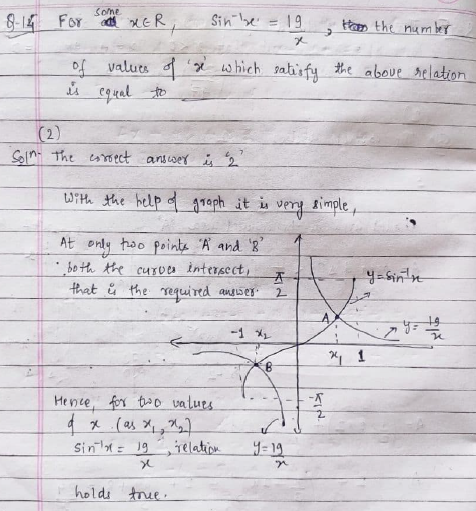 Q-14 For some x∈R, sin⁻¹x = 19/x, the number
of values of 'x' which satisfy the above relation
is equal to
(2)
Soln- The correct answer is '2'
With the help of graph it is very simple,
At only two points 'A' and 'B'
both the curves intersect,
that is the required answer.
π/2
y=sin⁻¹x
A
y=19/x
-1 x₂
x₁ 1
B
-π/2
Hence, for two values
of x (as x₁, x₂)
sin⁻¹x = 19/x, relation
y=19/x
holds true.